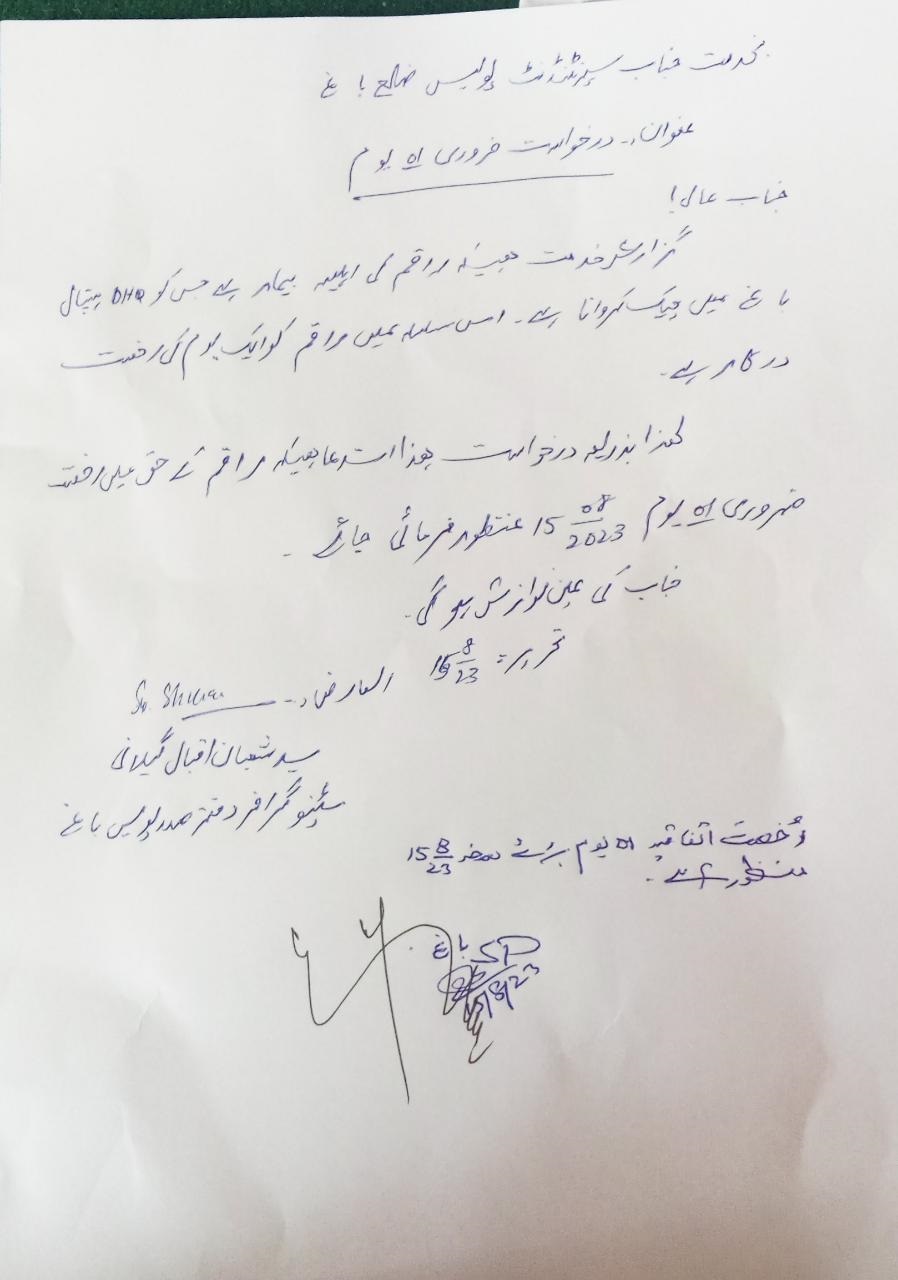 بخدمت جناب سپرنٹنڈنٹ پولیس ضلع باغ
عنوان:۔ درخواست ضروری 01 یوم
جناب عالی!
گزارش خدمت ہیکہ راقم کی اہلیہ بیمار ہے جس کو DHQ ہسپتال
باغ میں چیک کروانا ہے۔ اس سلسلہ میں راقم کو ایک یوم کی رخصت
درکار ہے۔
لھذا بذریعہ درخواست ہذا استدعا ہیکہ راقم کے حق میں رخصت
ضروری 01 یوم 15 08/2023 منظور فرمائی جائے۔
جناب کی عین نوازش ہو گی۔
تحریر: 15 8/23 العارض:۔
سید شعبان اقبال گیلانی
سٹینوگرافر دفتر صدر پولیس باغ
رُخصت اتفاقیہ 01 یوم برائے مورخہ 15 8/23
منظور ہے۔
SP باغ
15/8/23